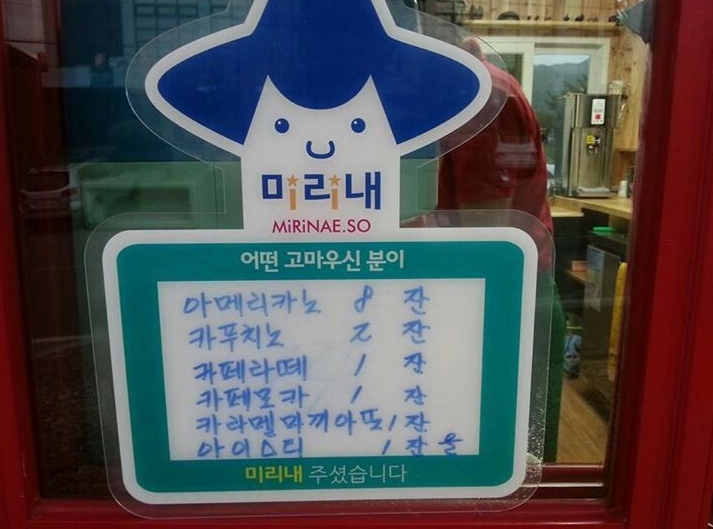 미리내
MiRiNAE.SO
어떤 고마우신 분이
아메리카노 8 잔
카푸치노 2 잔
카페라떼 1 잔
카페모카 1 잔
카라멜마끼아또 1 잔
아이스티 1 잔 을
미리내 주셨습니다